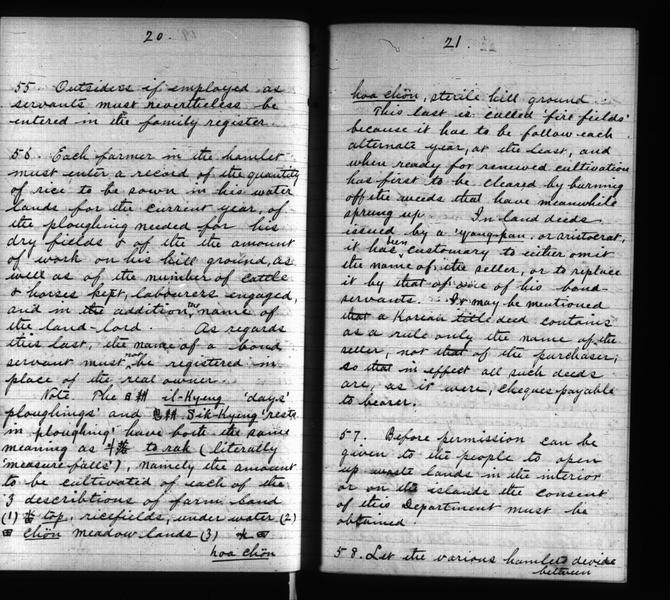 20.
55. Outsiders if employed as
servants must nevertheless be
entered in the family register.
56. Each farmer in the hamlet
must enter a record of the quantity
of rice to be sown in his water
lands for the current year, of
the ploughing needed for his
dry fields & of the the amount
of work on his hill ground, as
well as of the number of cattle
& horses kept, labourers engaged,
and in the addition, the name of
the land-lord. As regards
this last, the name of a bond
servant must not be registered in
place of the real owner.
Note. The 日耕 il-Kyeng 'days'
ploughings' and 息耕 Sik-Kyeng 'rests
in ploughing' have both the same
meaning as 斗落 to rak (literally
'measure-falls'), namely the amount
to be cultivated of each of the
3 describtions of farm land
(1) 畓 top, ricefields, under water (2)
田 chŏn meadow lands (3) 火田
hoa chŏn
21.
hoa chŏn, sterile hill ground
This last is called 'fire fields'
because it has to be follow each
alternate year, at the least, and
when ready for renewed cultivation
has first to be cleared by burning
off the weeds that have meanwhile
sprung up. In land deeds
issued by a 'yang-pan, or aristocrat,
it has been customary to either omit
the name of the seller, or to replace
it by that of one of his bond-
servants. It may be mentioned
that a Korean title deed contains
as a rule only the name of the
seller, not that of the purchaser;
so that in effect all such deeds
are, as it were, cheques payable
to bearer.
57. Before permission can be
given to the people to open
up waste lands in the interior
or on the islands the consent
of this Department must be
obtained.
58. Let the various hamlets devide
between